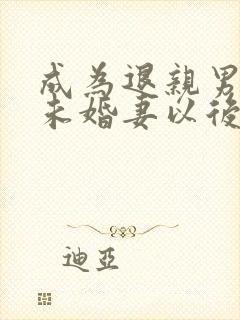 成為退親男
未婚妻以後
迪亞